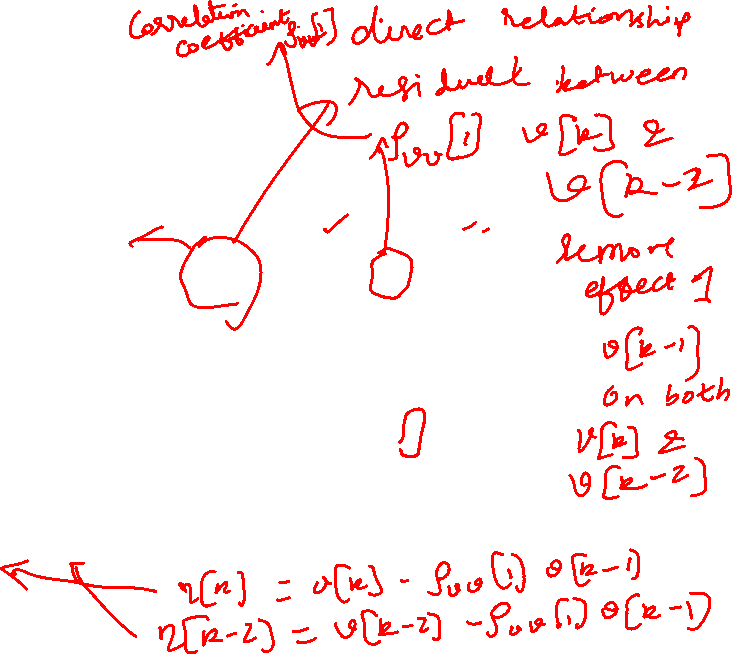 Correlation
coefficient ρvv[1] direct relationship
residuals between
ρvv[1] v[k] &
v[k-2]
remove
effect of
v[k-1]
on both
v[k] &
v[k-2]
η[k] = v[k] - ρvv[1] v[k-1]
η[k-2] = v[k-2] - ρvv[1] v[k-1]